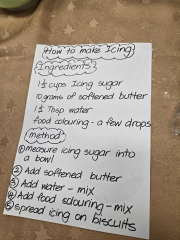 How to make Icing
Ingredients
1 1/2 cups Icing sugar
10 grams of softened butter
1 1/2 Tbsp water
food colouring - a few drops
method
① measure icing sugar into
a bowl
② Add softened butter
③ Add water - mix
④ Add food colouring - mix
⑤ spread icing on biscuits